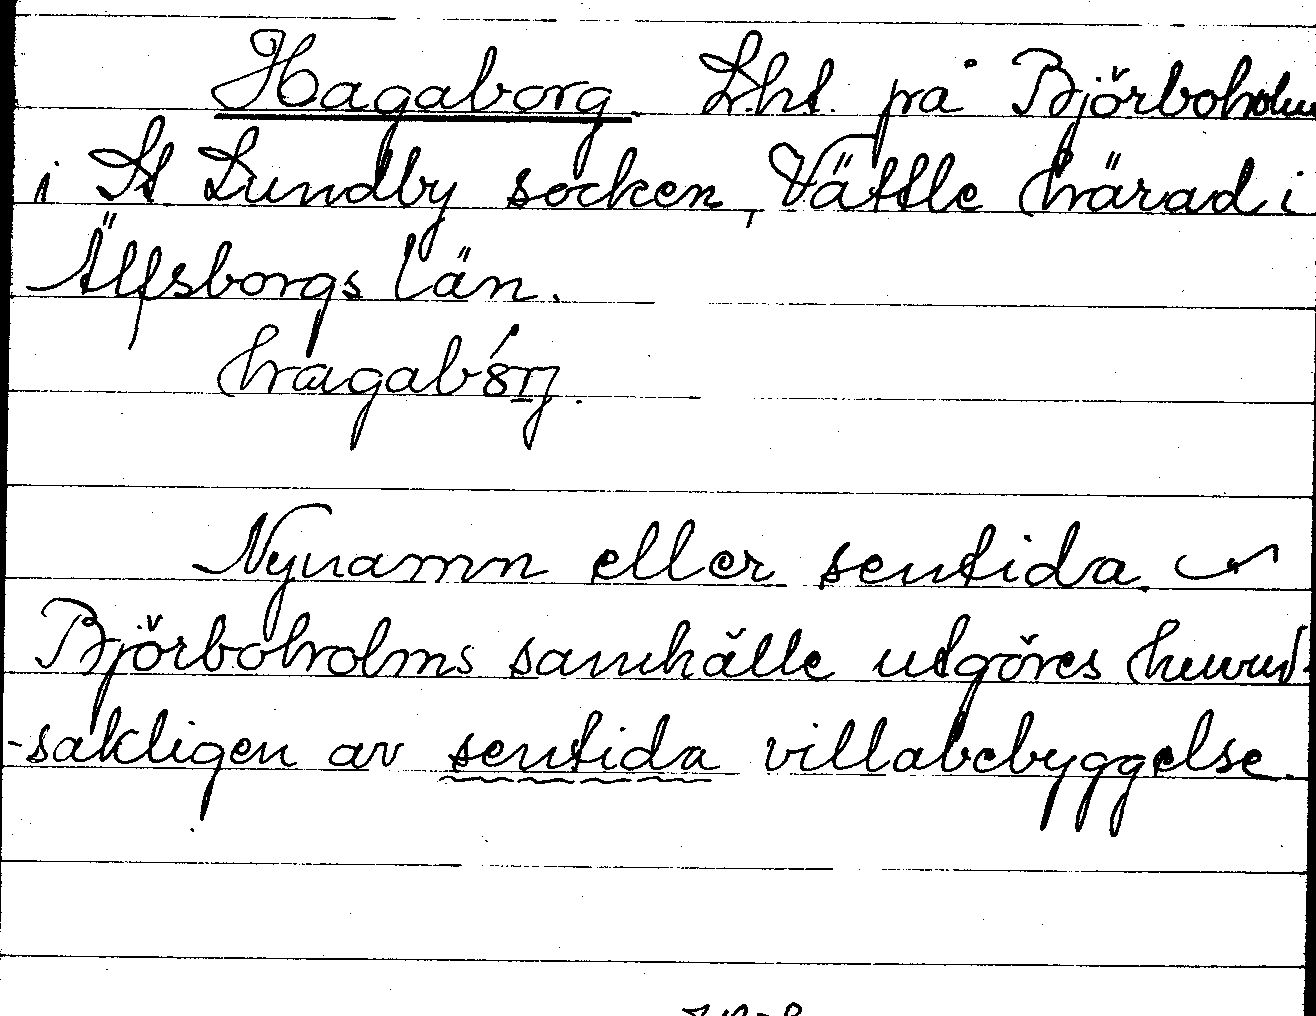 Hagaborg. Lht. på Björboholm
i St Lundby socken, Vättle härad i
Älfsborgs län.
hagabórj.
Nynamn eller sentida.
Björboholms samhälle utgöres huvud-
-sakligen av sentida villabebyggelse.